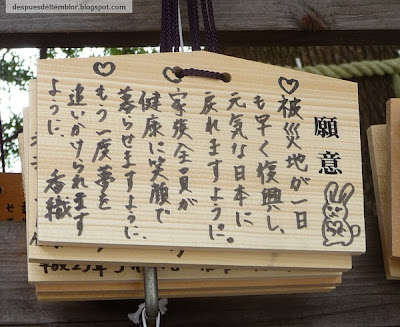 despuesdeltemblor.blogspot.com
願意
♡被災地が一日
も早く復興し、
元気な日本に
戻れますように。
♡家族全員が
健康に笑顔で
暮らせますように、
♡もう一度夢を
追いかけられます
ように、 香織
平成23年